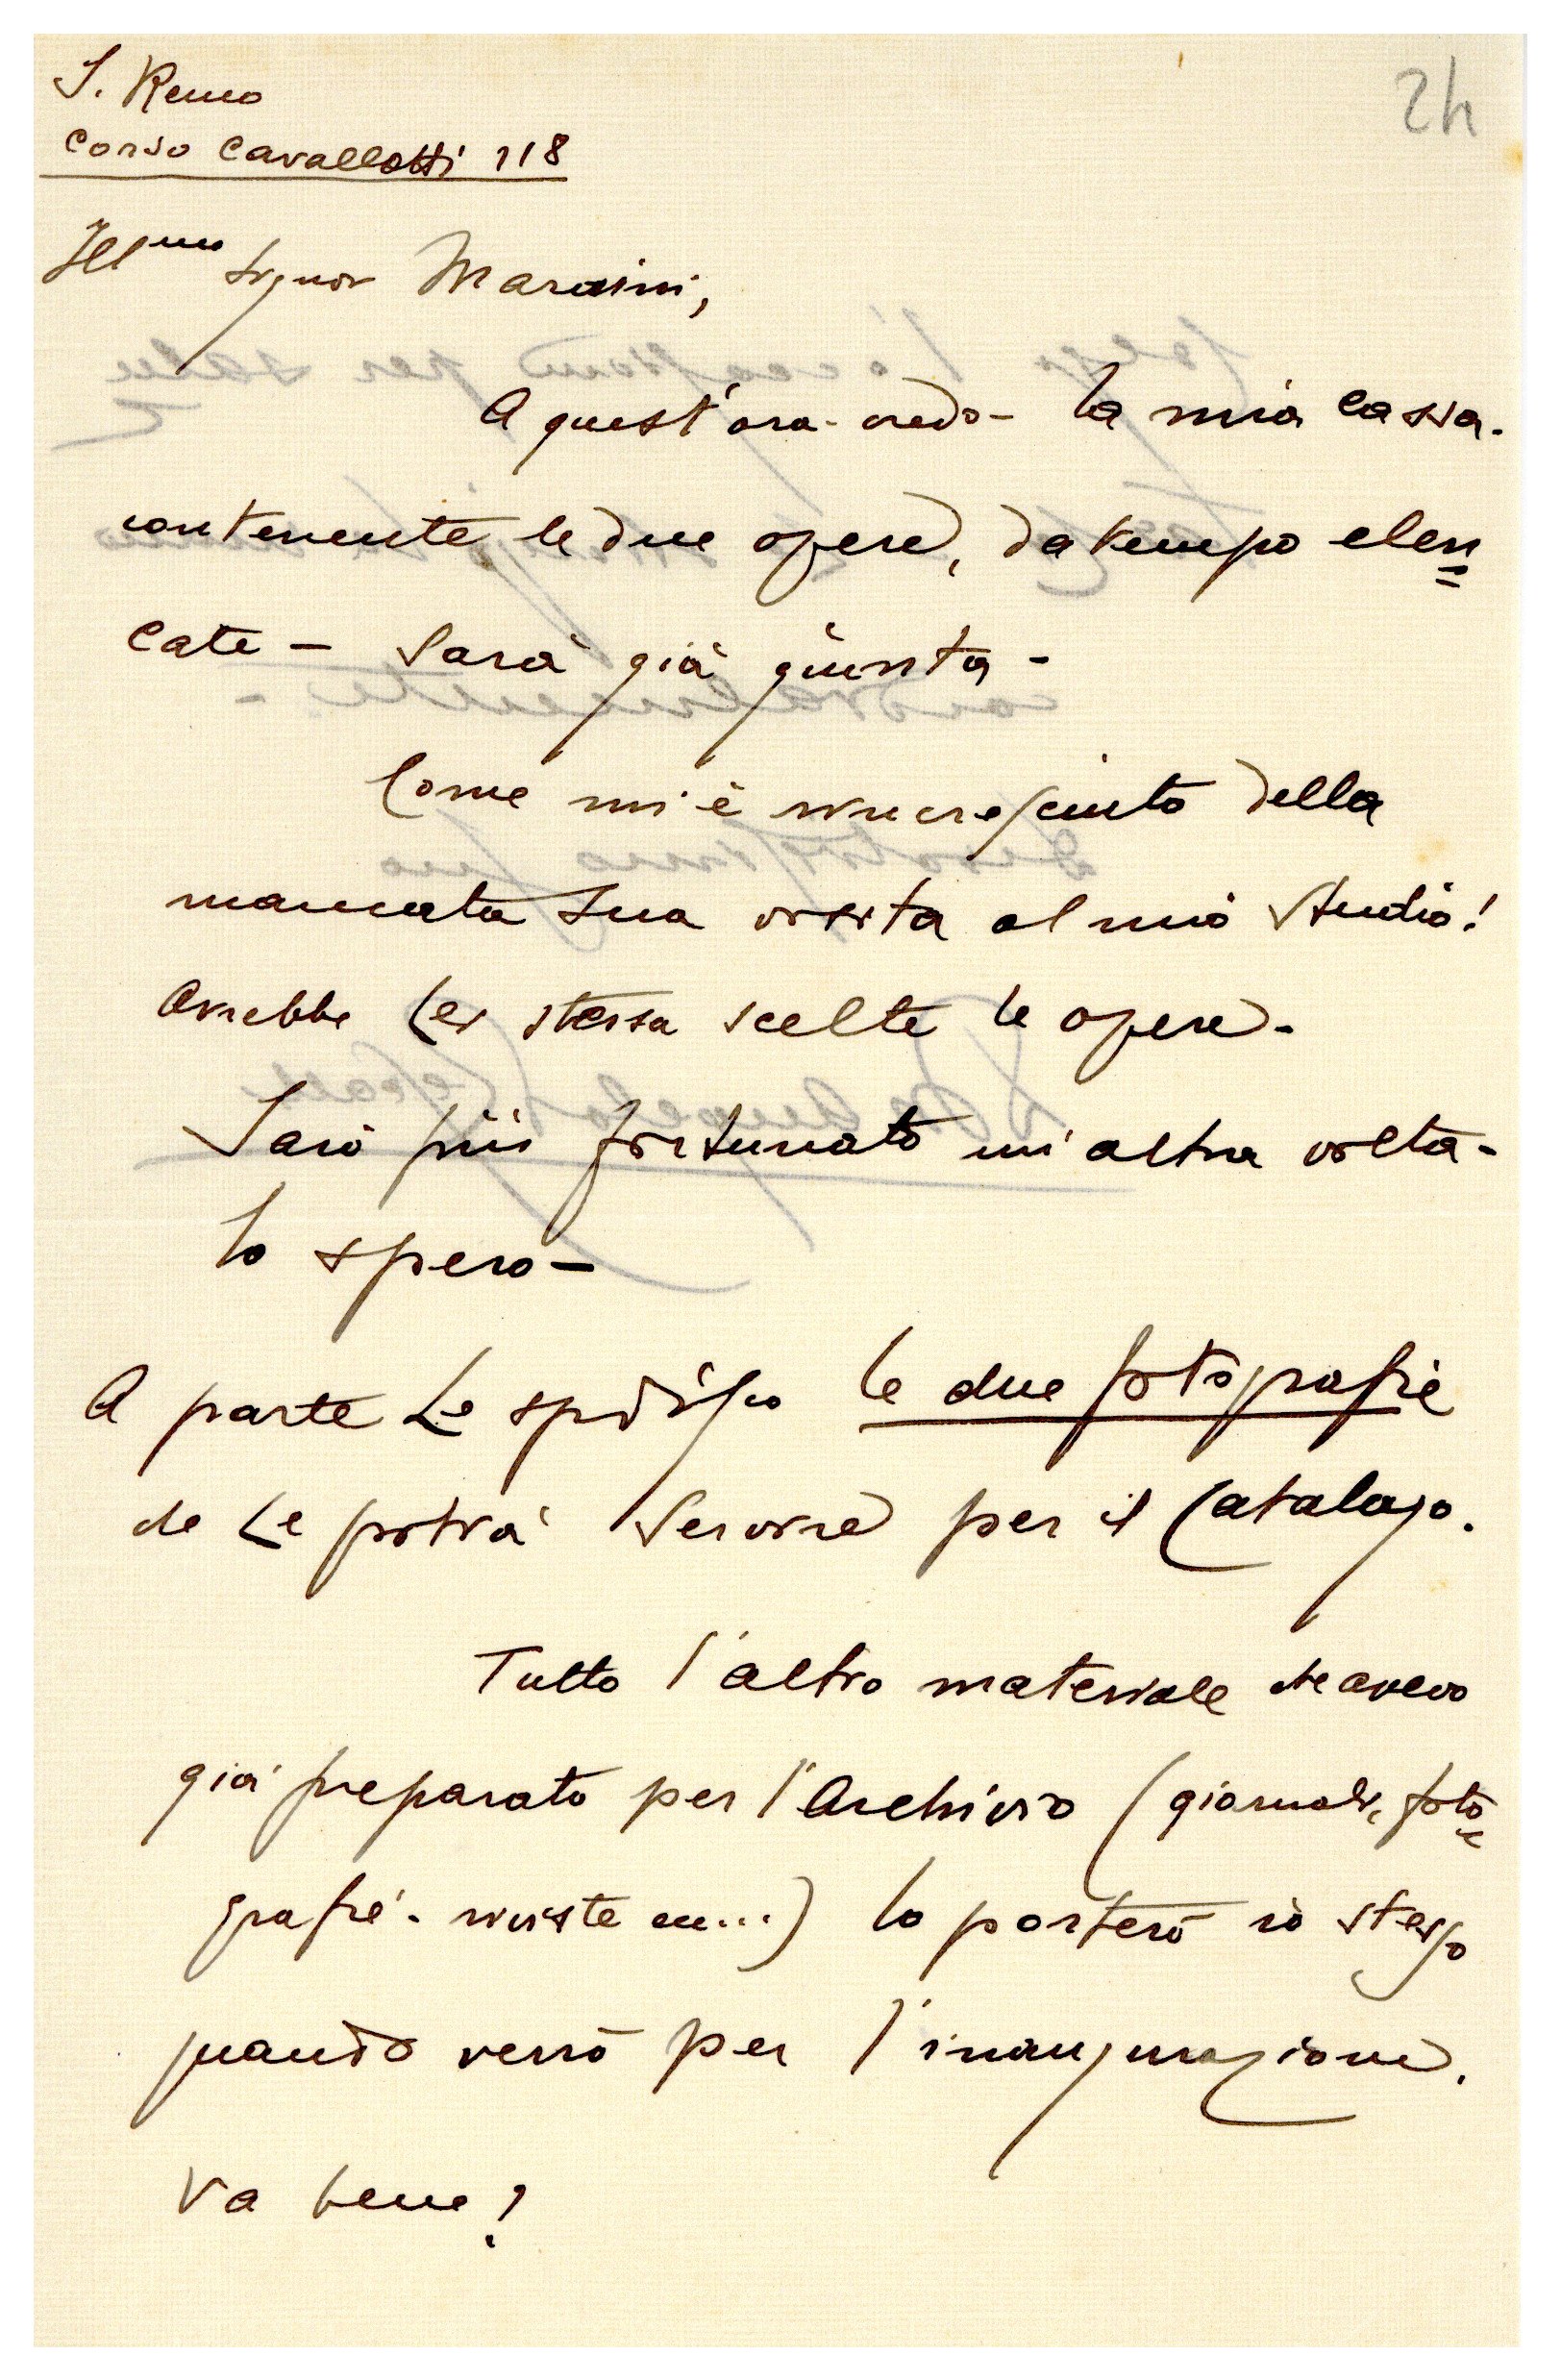 24
S. Remo
Corso Cavallotti 118
Ill.mo Signor Maraini,
A quest'ora - credo - la mia cassa -
contenente le due opere, da tempo elen=
cate - sarà già giunta -
Come mi è rincresciuto della
mancata Sua visita al mio Studio!
Avrebbe Lei stessa scelte le opere -
Sarò più fortunato un'altra volta -
lo spero -
A parte Le spedisco le due fotografie
che Le potrà servire per il Catalogo.
Tutto l'altro materiale che avevo
già preparato per l'Archivio (giornali, foto=
grafie - riviste ecc...) lo porterò io stesso
quando verrò per l'inaugurazione.
Va bene?